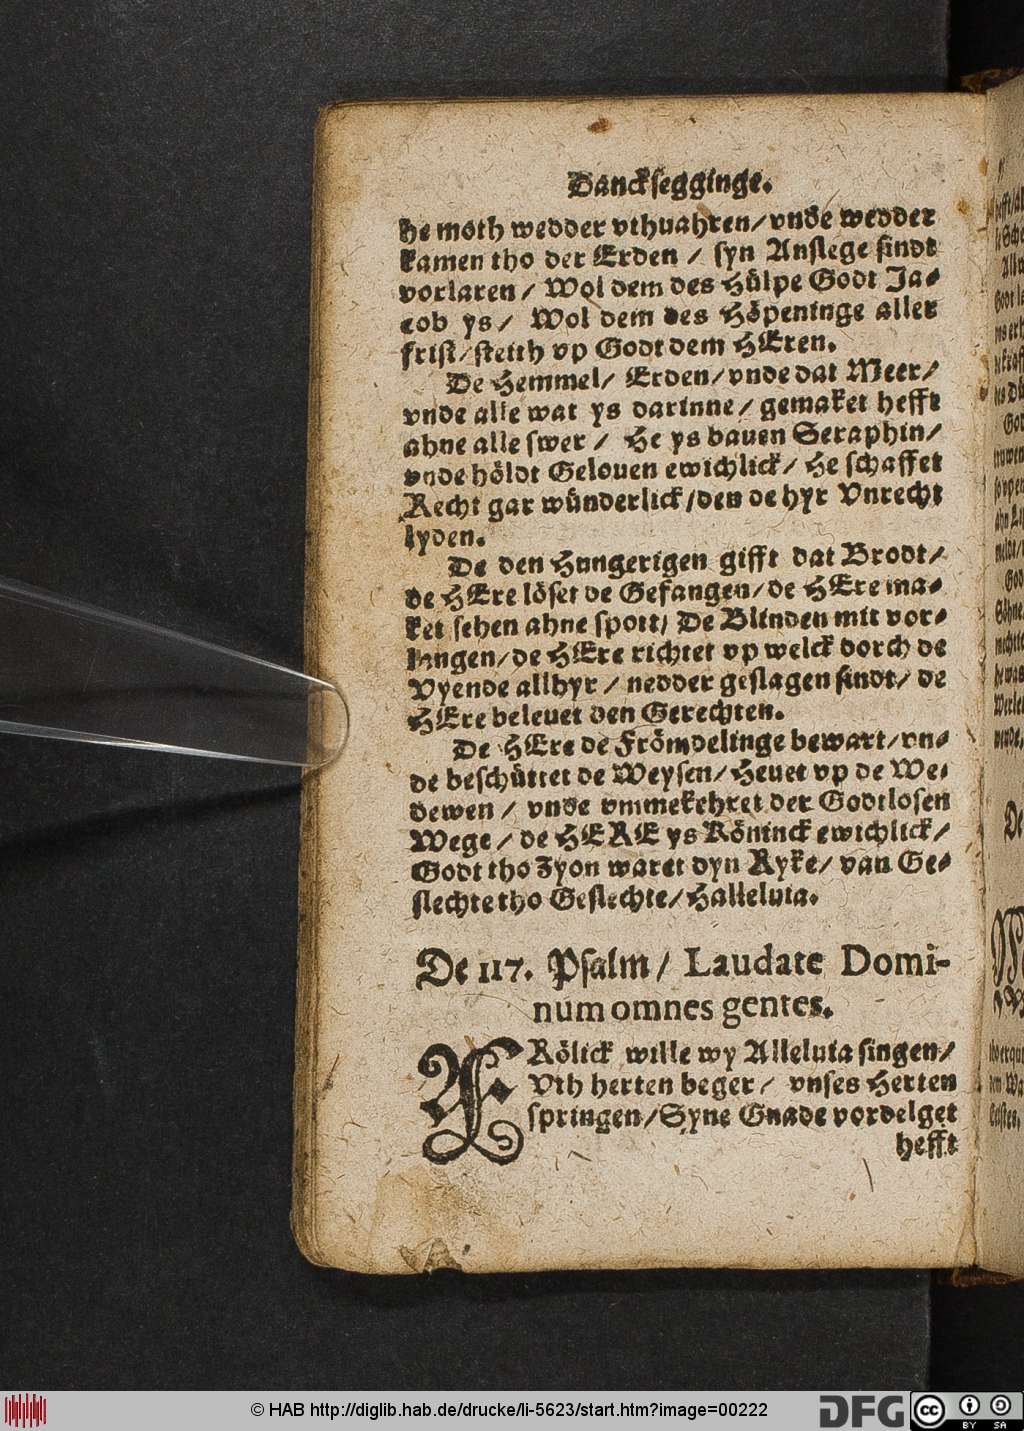 Dancksegginge.
he moth wedder vthuahren/ vnde wedder
kamen tho der Erden / syn Anslege sindt
vorlaren / Wol dem des Hülpe Godt Ja-
cob ys / Wol dem des Höpeninge aller
frist/ steith vp Godt dem HEren.
De Hemmel/ Erden/ vnde dat Meer/
vnde alle wat ys darinne / gemaket hefft
ahne alle swer / He ys bauen Seraphin/
vnde höldt Gelouen ewichlick/ He schaffet
Recht gar wünderlick/ den de hyr Vnrecht
lyden.
De den Hungerigen gifft dat Brodt/
de HEre löset de Gefangen/ de HEre ma-
ket sehen ahne spott/ De Blinden mit vor-
langen/ de HEre richtet vp welck dorch de
Vyende allhyr / nedder geslagen sindt/ de
HEre beleuet den Gerechten.
De HEre de Frömdelinge bewart/ vn-
de beschüttet de Weysen/ Heuet vp de We-
dewen / vnde vmmekehret der Godtlosen
Wege / de HERE ys Köninck ewichlick/
Godt tho Zyon waret dyn Ryke/ van Ge-
slechte tho Geslechte/ Halleluia.
De 117. Psalm / Laudate Domi-
num omnes gentes.
FRölick wille wy Alleluia singen/
Vth herten beger / vnses Herten
springen/ Syne Gnade vordelget
hefft
© HAB http://diglib.hab.de/drucke/li-5623/start.htm?image=00222
DFG
cc
BY SA